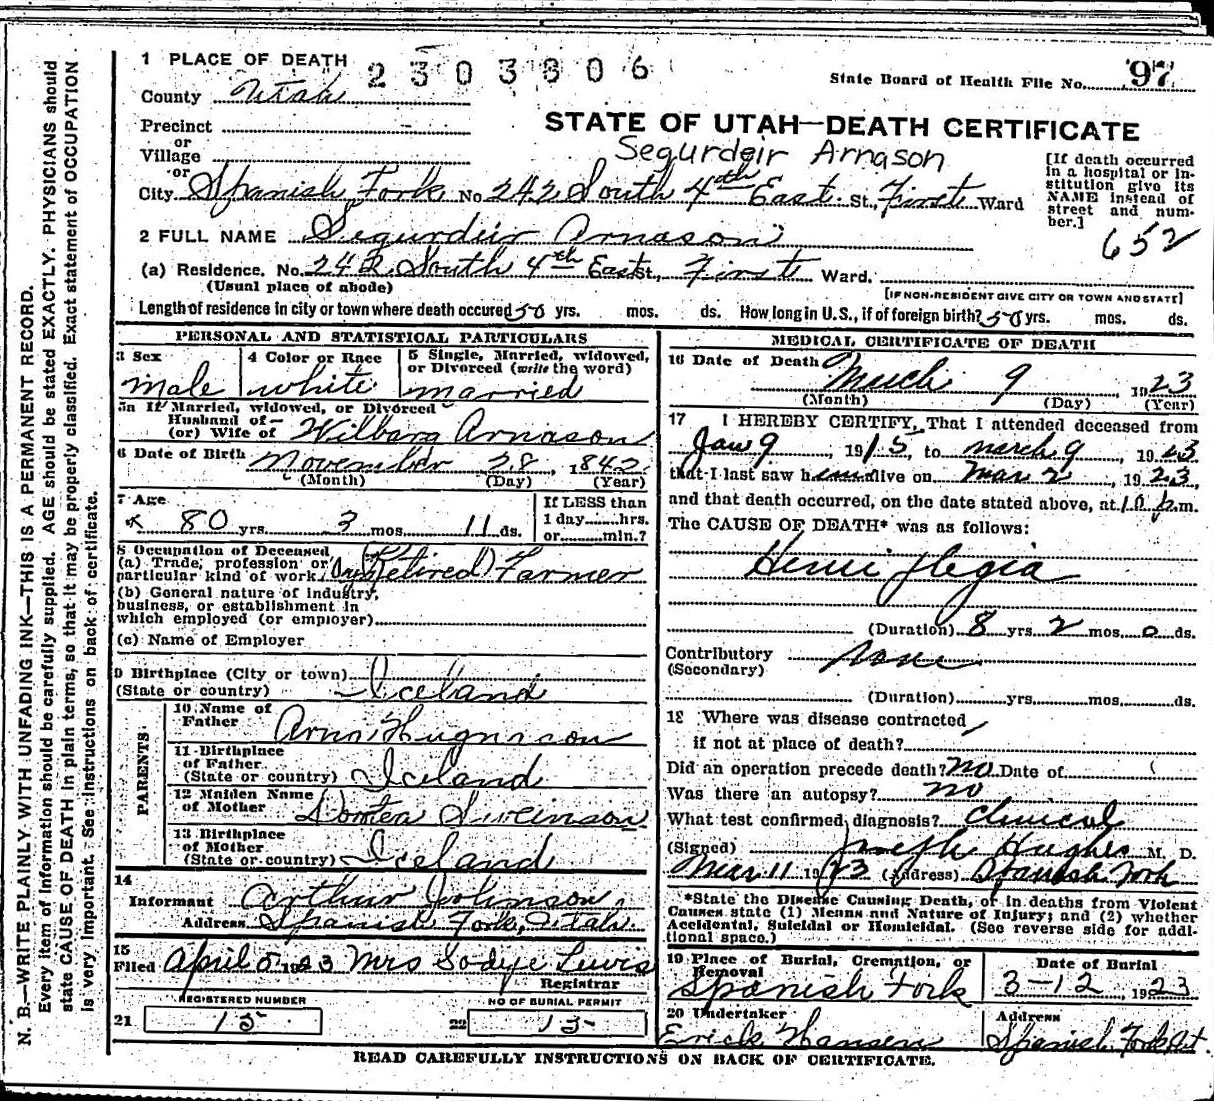 1 PLACE OF DEATH 2303806
State Board of Health File No. 97
County Utah
STATE OF UTAH—DEATH CERTIFICATE
Precinct
or
Village
Segurdeir Arnason
or
City Spanish Fork No. 242 South 4th East St., First Ward
[If death occurred in a hospital or institution give its NAME instead of street and number.]
652
2 FULL NAME Segurdeir Arnason
(a) Residence. No. 242 South 4th East St., First Ward.
(Usual place of abode)
[IF NON-RESIDENT GIVE CITY OR TOWN AND STATE]
Length of residence in city or town where death occured 50 yrs. mos. ds. How long in U.S., if of foreign birth? 50 yrs. mos. ds.
PERSONAL AND STATISTICAL PARTICULARS
3 Sex
male
4 Color or Race
white
5 Single, Married, widowed, or Divorced (write the word)
married
5a If Married, widowed, or Divorced
Husband of
(or) Wife of Wilbarg Arnason
6 Date of Birth November 28, 1842
(Month) (Day) (Year)
7 Age
80 yrs. 3 mos. 11 ds.
If LESS than
1 day......hrs.
or......min.?
8 Occupation of Deceased
(a) Trade, profession or
particular kind of work, (Retired) Farmer
(b) General nature of industry,
business, or establishment in
which employed (or employer)
(c) Name of Employer
9 Birthplace (City or town)
(State or country) Iceland
PARENTS
10 Name of
Father Arna Hugnason
11 Birthplace
of Father
(State or country) Iceland
12 Maiden Name
of Mother Sweinson
13 Birthplace
of Mother
(State or country) Iceland
14
Informant Arthur Johnson
Address Spanish Fork, Utah.
15
Filed April 5 1923 Mrs Sodye Lewis
Registrar
REGISTERED NUMBER NO OF BURIAL PERMIT
21 15 22 15
MEDICAL CERTIFICATE OF DEATH
16 Date of Death
March 9 1923
(Month) (Day) (Year)
17 I HEREBY CERTIFY, That I attended deceased from
Jan 9, 1915, to march 9, 1923
that I last saw him alive on Mar 2, 1923,
and that death occurred, on the date stated above, at 10 p.m.
The CAUSE OF DEATH* was as follows:
Hemiplegia
(Duration) 8 yrs. 2 mos. 0 ds.
Contributory none
(Secondary)
(Duration)......yrs......mos......ds.
18 Where was disease contracted
if not at place of death?
Did an operation precede death? no Date of
Was there an autopsy? no
What test confirmed diagnosis? clinical
(Signed) Joseph Hughes M. D.
Mar 11 1923 (Address) Spanish Fork
*State the Disease Causing Death, or in deaths from Violent
Causes state (1) Means and Nature of Injury; and (2) whether
Accidental, Suicidal or Homicidal. (See reverse side for additional space.)
19 Place of Burial, Cremation, or
Removal
Spanish Fork
Date of Burial
3-12, 1923
20 Undertaker
Erick Hansen
Address
Spanish Fork Ut.
READ CAREFULLY INSTRUCTIONS ON BACK OF CERTIFICATE.
N. B.—WRITE PLAINLY WITH UNFADING INK—THIS IS A PERMANENT RECORD.
Every item of information should be carefully supplied. AGE should be stated EXACTLY. PHYSICIANS should
state CAUSE OF DEATH in plain terms, so that it may be properly classified. Exact statement of OCCUPATION
is very important. See instructions on back of certificate.